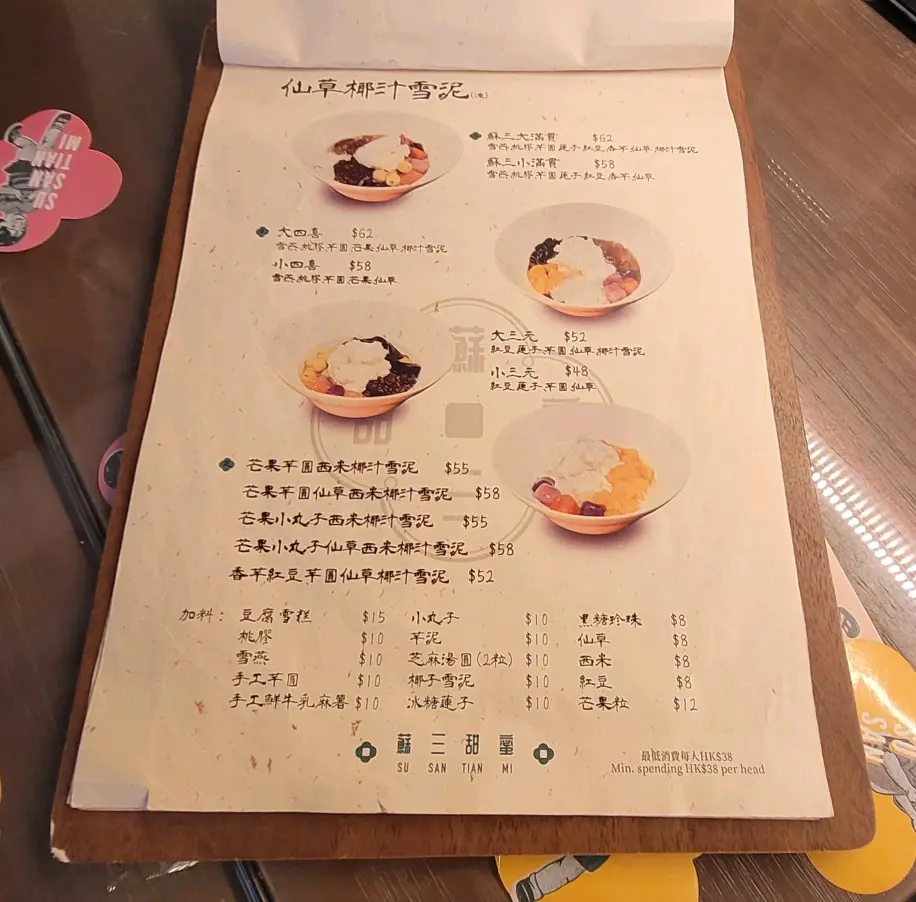 仙草椰汁雪泥(凍)
蘇三大滿貫 $62
雪燕.桃膠.芋圓.蓮子.紅豆.香芋.仙草.椰汁雪泥
蘇三小滿貫 $58
雪燕.桃膠.芋圓.蓮子.紅豆.香芋.仙草
大四喜 $62
雪燕.桃膠.芋圓.芒果.仙草.椰汁雪泥
小四喜 $58
雪燕.桃膠.芋圓.芒果.仙草
大三元 $52
紅豆.蓮子.芋圓.仙草.椰汁雪泥
小三元 $48
紅豆.蓮子.芋圓.仙草
芒果芋圓西米椰汁雪泥 $55
芒果芋圓仙草西米椰汁雪泥 $58
芒果小丸子西米椰汁雪泥 $55
芒果小丸子仙草西米椰汁雪泥 $58
香芋紅豆芋圓仙草椰汁雪泥 $52
加料: 豆腐雪糕 $15 小丸子 $10 黑糖珍珠 $8
桃膠 $10 芋泥 $10 仙草 $8
雪燕 $10 芝麻湯圓(2粒) $10 西米 $8
手工芋圓 $10 椰子雪泥 $10 紅豆 $8
手工鮮牛乳麻薯 $10 冰糖蓮子 $10 芒果粒 $12
蘇三甜蜜
SU SAN TIAN MI
最低消費每人HK$38
Min. spending HK$38 per head
SU
SAN
TIAN
MI